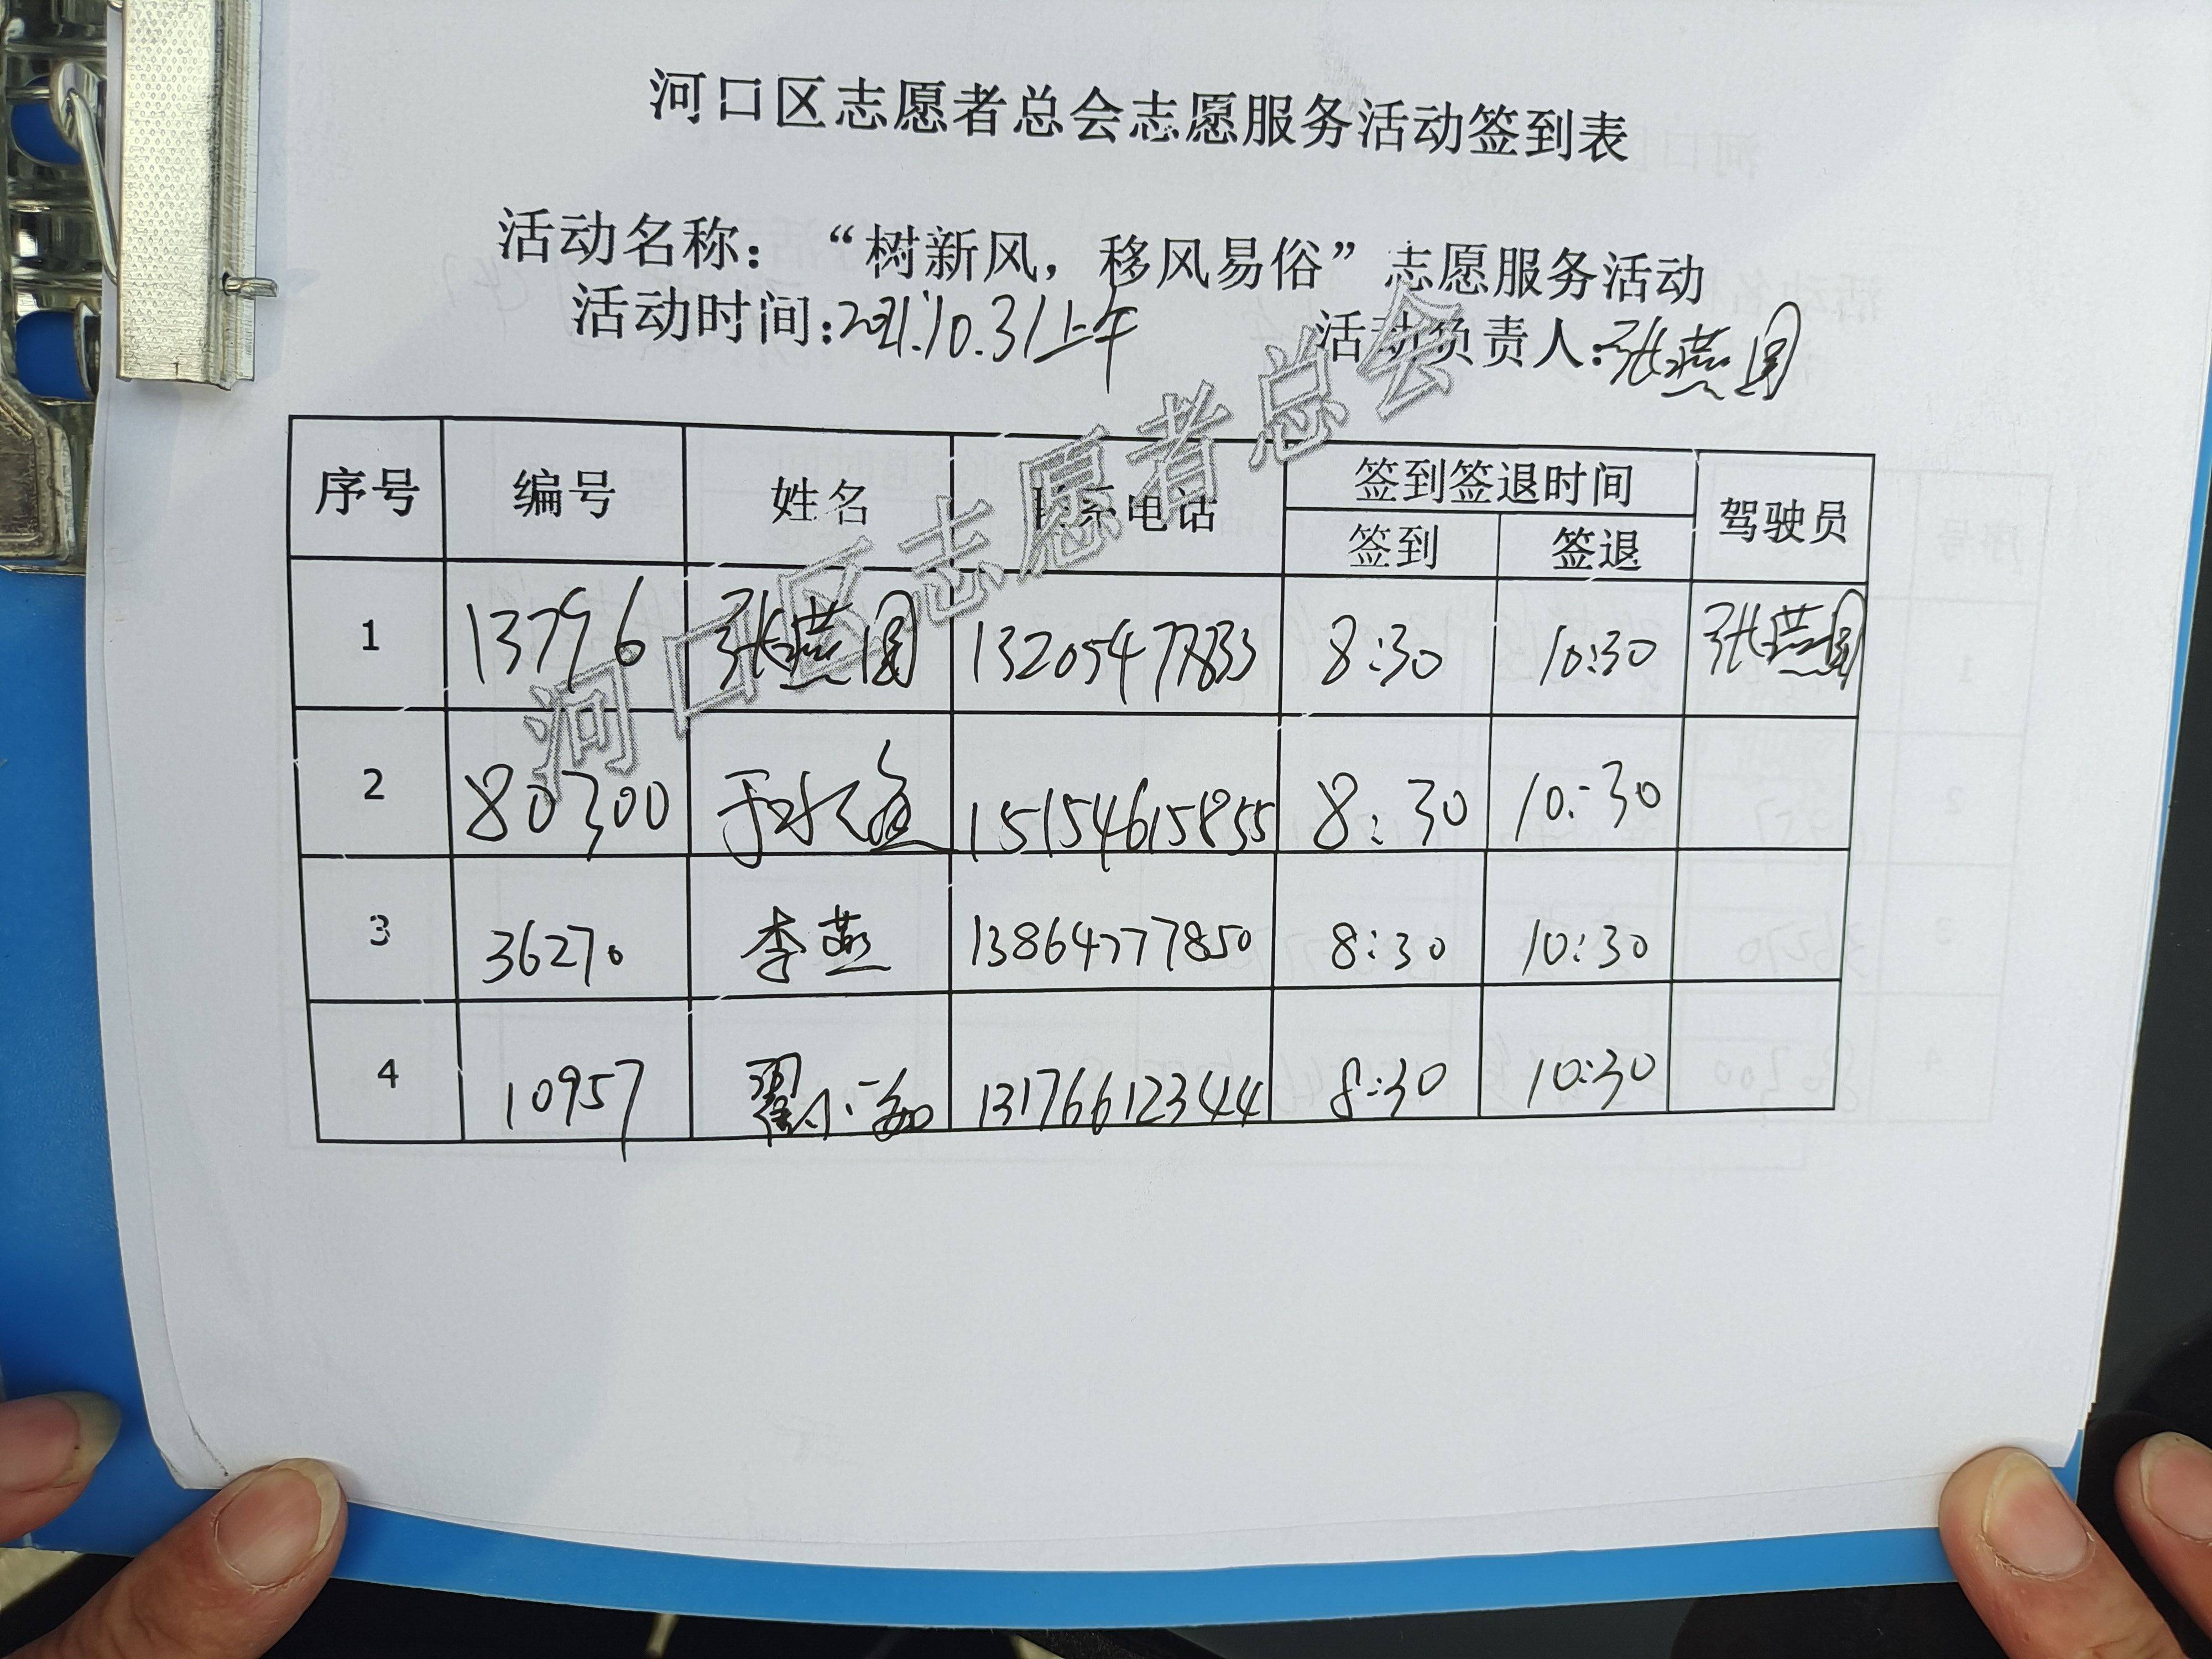 河口区志愿者总会志愿服务活动签到表
活动名称：“树新风，移风易俗”志愿服务活动
活动时间：2021.10.31上午 活动负责人：张燕圆
序号 编号 姓名 联系电话 签到签退时间 驾驶员
签到 签退
1 13796 张燕圆 13205477833 8:30 10:30 张燕圆
2 80300 15154615855 8:30 10:30
3 36270 李燕 13864777850 8:30 10:30
4 10957 13176612344 8:30 10:30
河口区志愿者总会